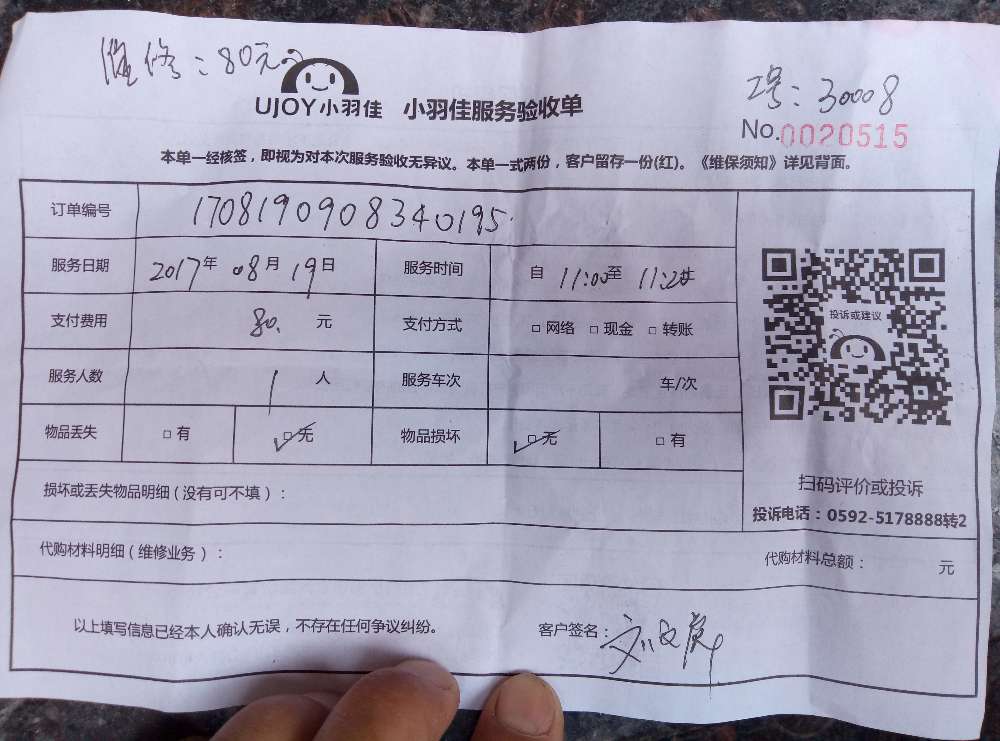 维修：80元
工号：30008
UJOY小羽佳 小羽佳服务验收单
No.0020515
本单一经核签，即视为对本次服务验收无异议。本单一式两份，客户留存一份(红)。《维保须知》详见背面。
订单编号 1708190908340195
服务日期 2017年08月19日 服务时间 自 11:00至 11:20止
支付费用 80. 元 支付方式 □ 网络 □ 现金 □ 转账
投诉或建议
服务人数 1 人 服务车次 车/次
物品丢失 □ 有 ☑ 无 物品损坏 ☑ 无 □ 有
扫码评价或投诉
损坏或丢失物品明细（没有可不填）：
投诉电话：0592-5178888转2
代购材料明细（维修业务）： 代购材料总额： 元
以上填写信息已经本人确认无误，不存在任何争议纠纷。 客户签名：